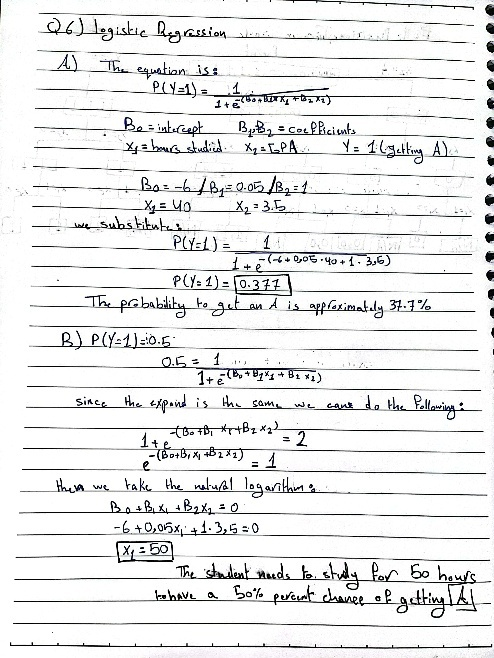 Q6) Logistic Regression
A) The equation is:
P(Y=1) = 1
1+e^-(B0+B1X1+B2X2)
B0 = intercept B1,B2 = coefficients
X1 = hours studied X2 = GPA Y = 1 (getting A)
B0 = -6 / B1 = 0.05 / B2 = 1
X1 = 40 X2 = 3.5
we substitute:
P(Y=1) = 1
1+e^-(-6+0,05·40+1·3,5)
P(Y=1) = 0.377
The probability to get an A is approximately 37.7%
B) P(Y=1)=0.5
0.5 = 1
1+e^-(B0+B1X1+B2X2)
since the expond is the same we can do the following:
1+e^-(B0+B1X1+B2X2) = 2
e^-(B0+B1X1+B2X2) = 1
then we take the natural logarithm:
B0+B1X1+B2X2 = 0
-6+0,05X1+1·3,5=0
X1 = 50
The student needs to study for 50 hours
to have a 50% percent chance of getting A